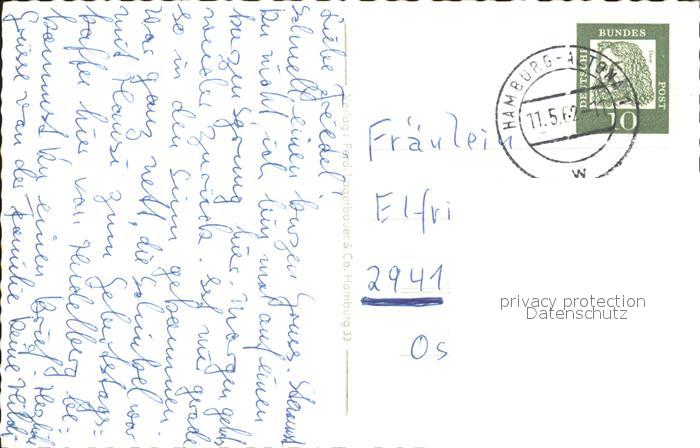 Liebe Friedel!
Schnell einen kurzen Gruss. Staunst
Du nicht ich bin mal auf einen
kurzen Sprung hier. Morgen gehts
wieder zurück. Ist mir gerade
so in den Sinn gekommen.
War ganz nett, die Schnibel war
mit Hansi zum Geburtstags-
kaffee hier. Von Heidelberg be-
kommst Du einen Brief. Herzl.
Grüsse von der Familie
Verlag: Ferd. Lagerbauer & Co. Hamburg 33
DEUTSCHE BUNDESPOST
10
HAMBURG-ALTONA 1
11.5.62
w
Fräulein
Elfri
2941
Os
privacy protection
Datenschutz